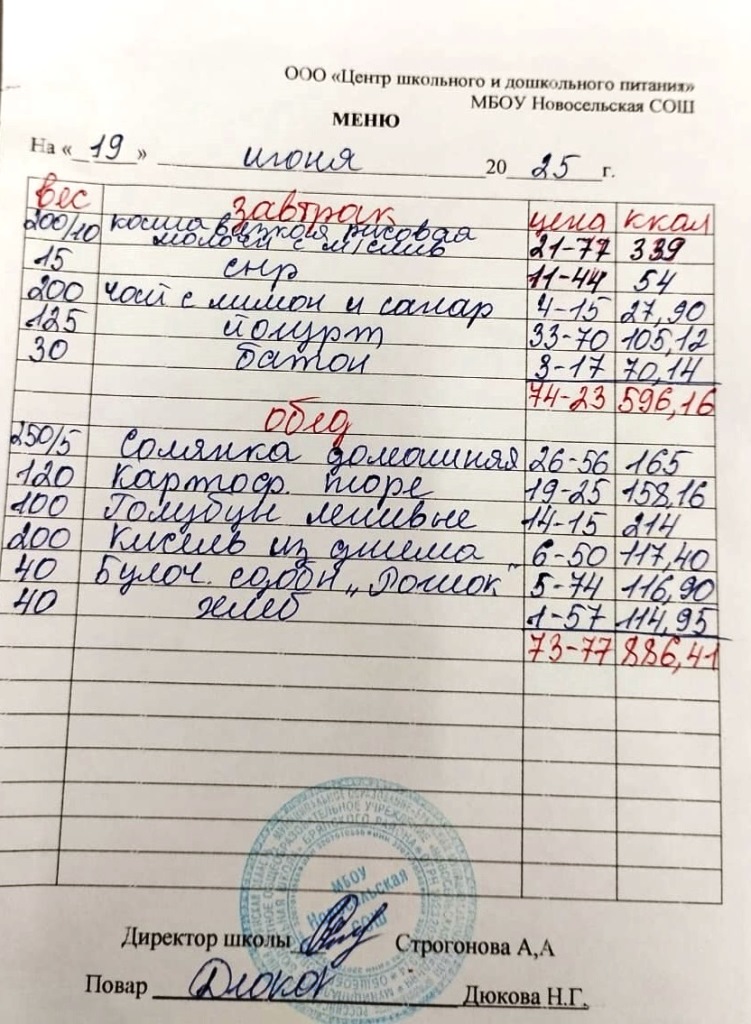 ООО «Центр школьного и дошкольного питания»
МБОУ Новосельская СОШ
МЕНЮ
На «19» июня 2025 г.
вес завтрак цена ккал
200/10 каша вязкая рисовая
молочн с м/слив 21-77 339
15 сыр 11-44 54
200 чай с лимон и сахар 4-15 27,90
125 йогурт 33-70 105,12
30 батон 3-17 70,14
74-23 596,16
обед
250/5 Солянка домашняя 26-56 165
120 Картоф. пюре 19-25 158,16
100 Голубцы ленивые 14-15 214
200 Кисель из джема 6-50 117,40
40 Булоч. сдобн „Ромок" 5-74 116,90
40 хлеб 1-57 114,95
73-77 886,41
МБОУ
Новосельская
СОШ
Директор школы Строгонова А,А
Повар Дюкова Н.Г.